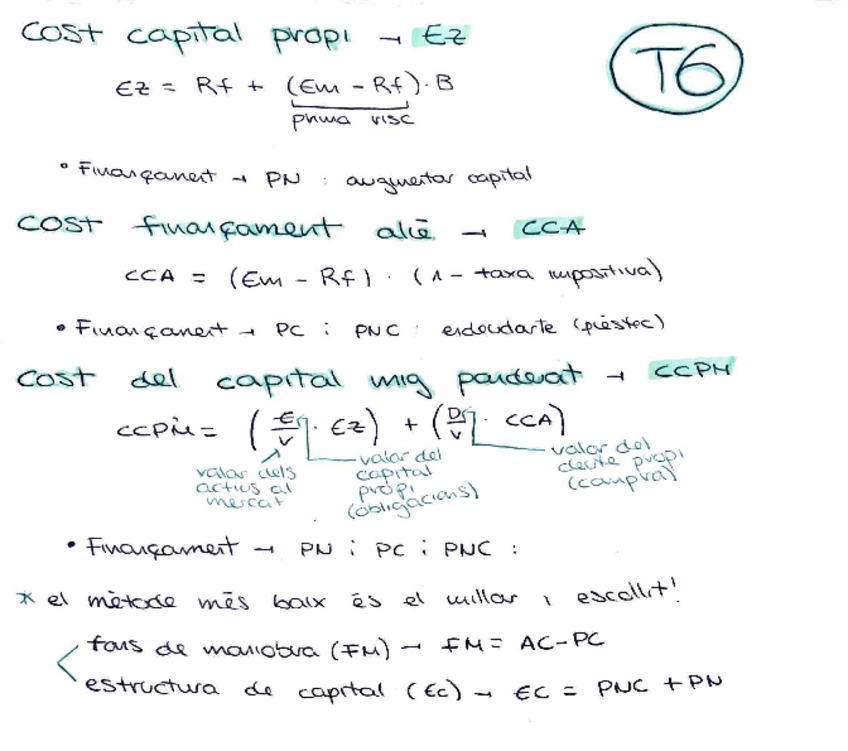 Cost capital propi → Ez
T6
Ez = Rf + (Em - Rf) · B
prima risc
• Finançament → PN : augmentar capital
Cost finançament aliè → CCA
CCA = (Em - Rf) · (1 - taxa impositiva)
• Finançament → PC i PNC : endeudarte (préstec)
Cost del capital mig ponderat → CCPM
CCPM = (E/V · Ez) + (D/V · CCA)
valor dels actius al mercat
valor del capital propi (obligacions)
valor del deute propi (compra)
• Finançament → PN i PC i PNC :
* el mètode més baix és el millor i escollit!
fons de maniobra (FM) → FM = AC - PC
estructura de capital (Ec) → EC = PNC + PN